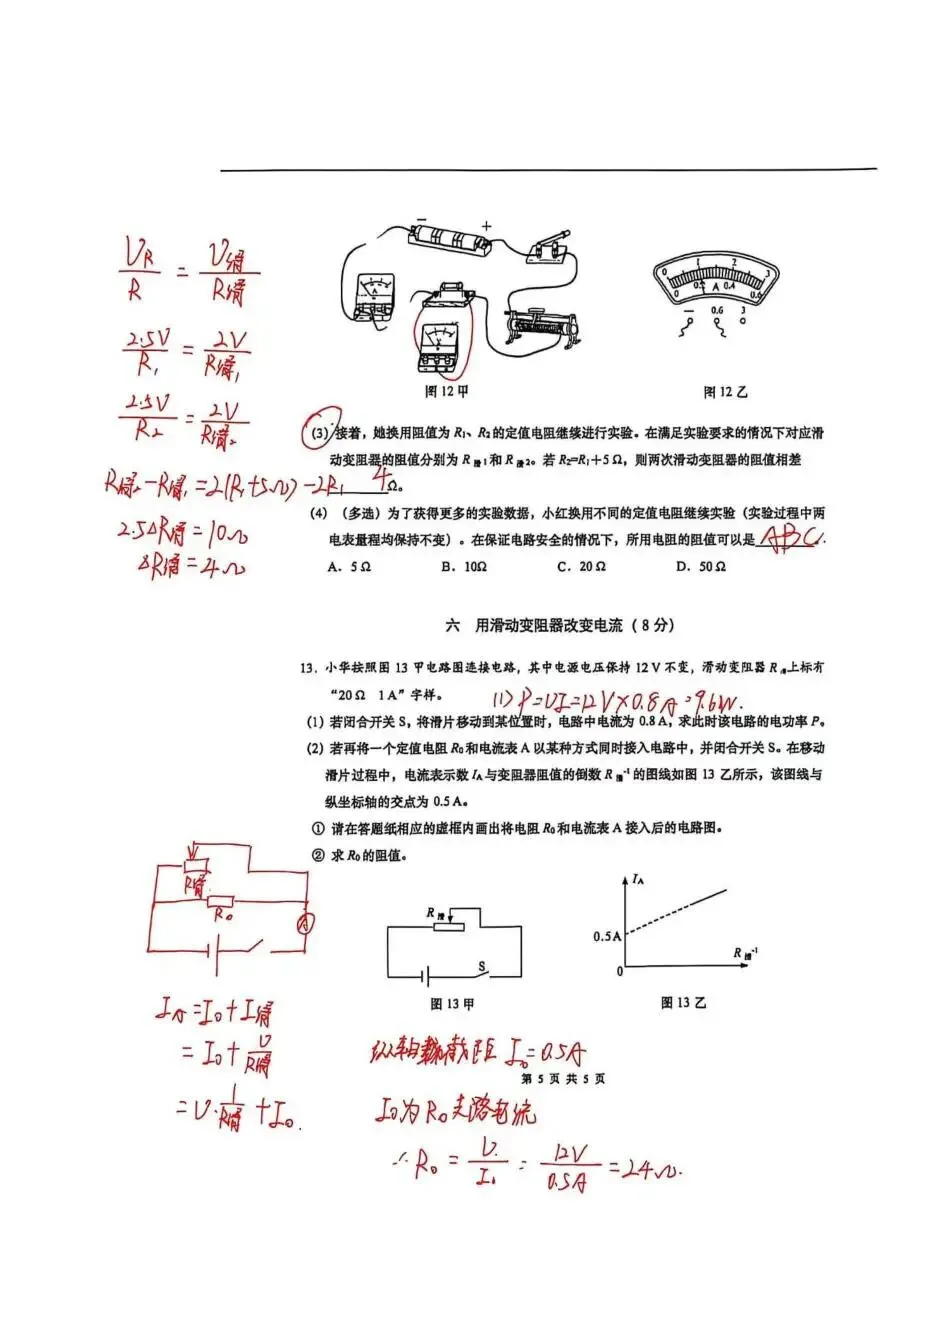 U_R/R = U滑/R滑
2.5V/R₁ = 2V/R滑₁
2.5V/R₂ = 2V/R滑₂
R滑₂-R滑₁=2(R₁+5Ω)-2R₁
2.5ΔR滑=10Ω
ΔR滑=4Ω
- +
A
V
图 12 甲
0 1 2 3
0 0.2 0.4 0.6
A
- 0.6 3
图 12 乙
(3) 接着，她换用阻值为 R₁、R₂的定值电阻继续进行实验。在满足实验要求的情况下对应滑
动变阻器的阻值分别为 R滑1和 R滑2。若 R₂=R₁+5 Ω，则两次滑动变阻器的阻值相差
4 Ω。
(4) （多选）为了获得更多的实验数据，小红换用不同的定值电阻继续实验（实验过程中两
电表量程均保持不变）。在保证电路安全的情况下，所用电阻的阻值可以是 ABC.
A. 5 Ω B. 10Ω C. 20 Ω D. 50 Ω
六 用滑动变阻器改变电流（8 分）
13. 小华按照图 13 甲电路图连接电路，其中电源电压保持 12 V 不变，滑动变阻器 R滑上标有
“20 Ω 1 A”字样。 (1) P=UI=12V×0.8A=9.6W.
(1) 若闭合开关 S，将滑片移动到某位置时，电路中电流为 0.8 A，求此时该电路的电功率 P。
(2) 若再将一个定值电阻 R₀和电流表 A 以某种方式同时接入电路中，并闭合开关 S。在移动
滑片过程中，电流表示数 I_A与变阻器阻值的倒数 R滑⁻¹的图线如图 13 乙所示，该图线与
纵坐标轴的交点为 0.5 A。
① 请在答题纸相应的虚框内画出将电阻 R₀和电流表 A 接入后的电路图。
② 求 R₀的阻值。
R滑
R₀
A
R滑
S
图 13 甲
I_A
0.5A
0
R滑⁻¹
图 13 乙
I_A=I₀+I滑
=I₀+U/R滑
=U·1/R滑+I₀.
I₀=0.5A
第 5 页 共 5 页
I₀为R₀支路电流
∴R₀=U/I₀=12V/0.5A=24Ω.